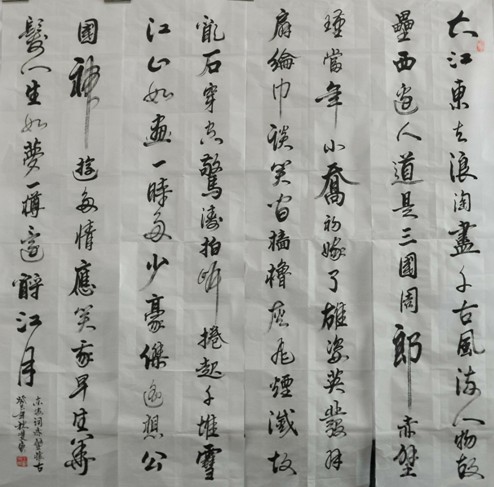 大江東去浪淘盡千古風流人物故
壘西邊人道是三國周郎赤壁
瑾當年小喬初嫁了雄姿英發羽
扇綸巾談笑間檣櫓灰飛煙滅故
亂石穿空驚濤拍岸捲起千堆雪
江山如畫一時多少豪傑遙想公
國神遊多情應笑我早生華
髮人生如夢一樽還酹江月
東坡詞赤壁懷古